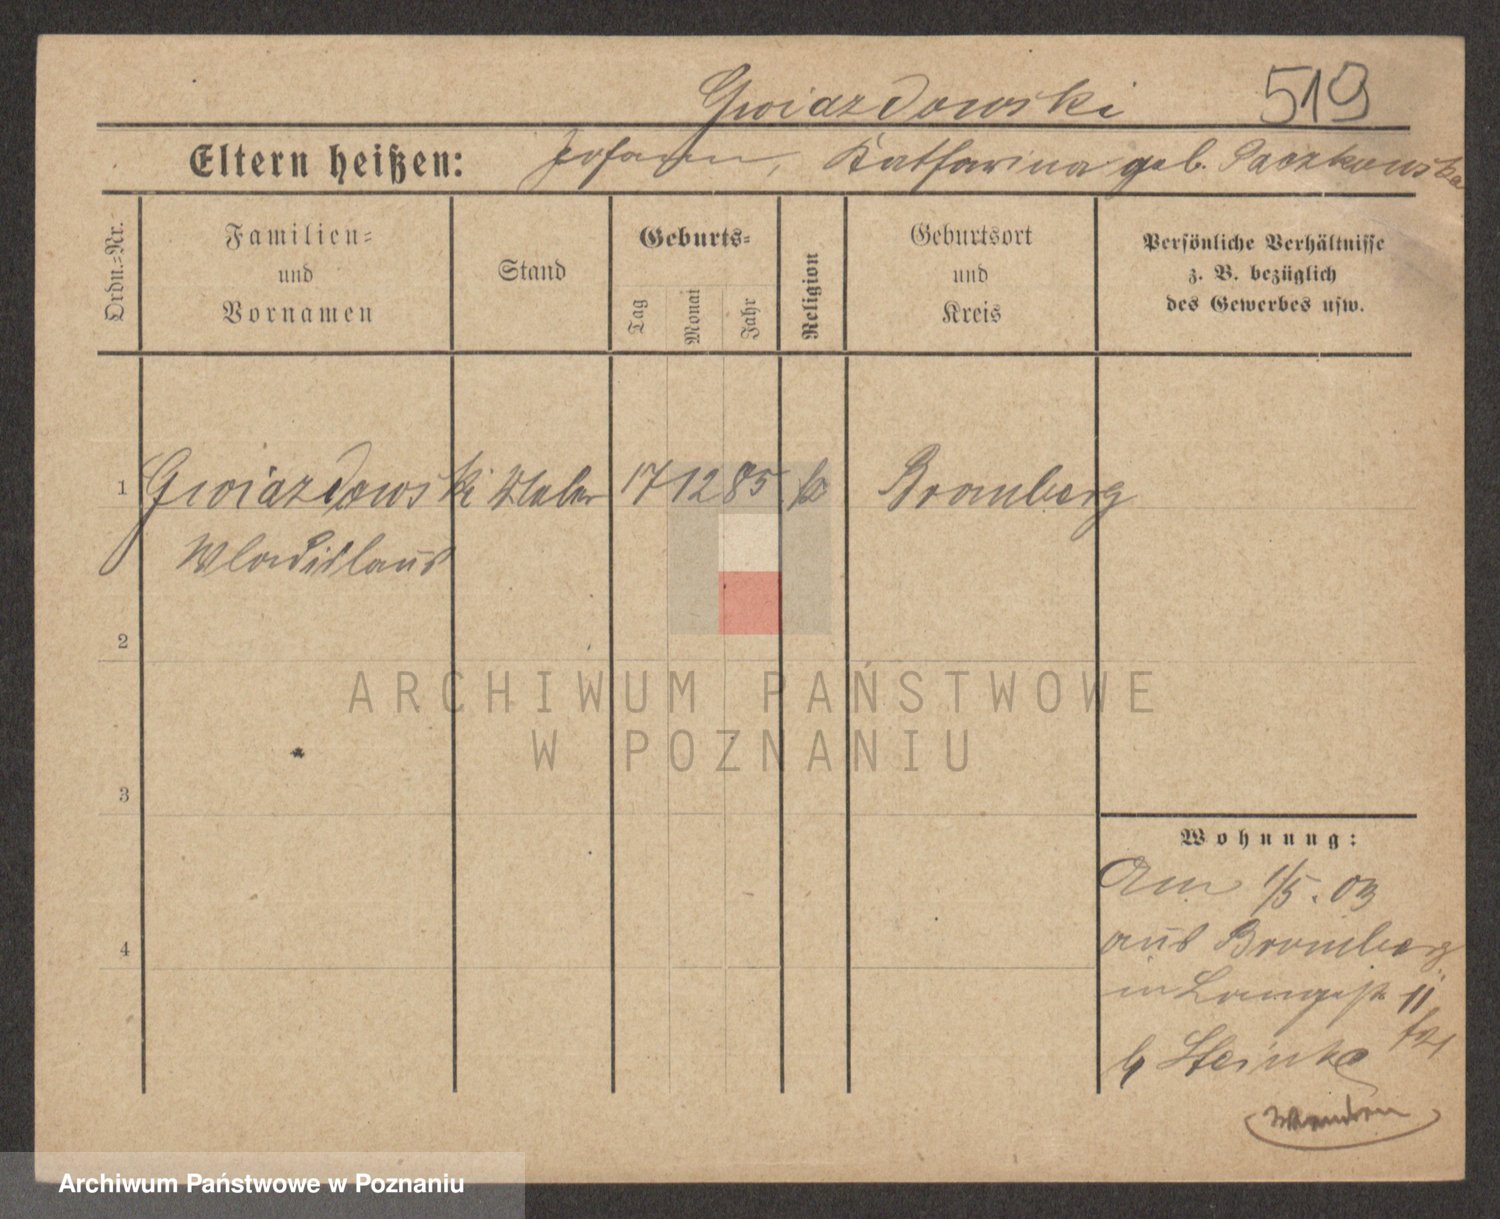 Gwiazdowski 519
Eltern heißen: Johann, Katharina geb. Paczkowska
Ordn.=Nr.
Familien=
und
Vornamen
Stand
Geburts=
Tag
Monat
Jahr
Religion
Geburtsort
und
Kreis
Persönliche Verhältnisse
z. B. bezüglich
des Gewerbes usw.
1 Gwiazdowski Maler 17 12 85 k Bromberg
Wladislaus
2
3
4
Wohnung:
Am 1/5. 03
aus Bromberg
in Langestr 11
b Steinke
ARCHIWUM PAŃSTWOWE
W POZNANIU
Archiwum Państwowe w Poznaniu